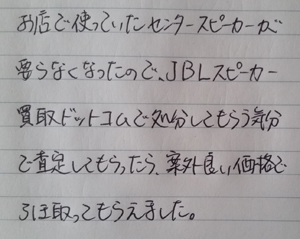 お店で使っていたセンタースピーカーが
要らなくなったので、JBLスピーカー
買取ドットコムで処分してもらう気分
で査定してもらったら、案外良い価格で
引き取ってもらえました。